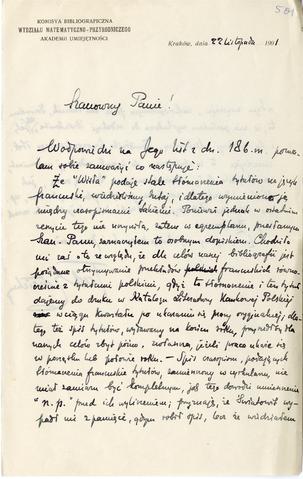 501
KOMISYA BIBLIOGRAFICZNA
WYDZIAŁU MATEMATYCZNO-PRZYRODNICZEGO
AKADEMII UMIEJĘTNOŚCI
Kraków, dnia 22 Listopada 1901
Szanowny Panie!
W odpowiedzi na Jego list z dn. 18 b.m. pozwa-
lam sobie zauważyć co następuje:
Że "Wisła" podaje stale tłómaczenia tytułów na język
francuski, wiedzieliśmy tutaj, i dlatego wymieniono ją
między czasopismami takiemi. Ponieważ jednak w ostatnim
zeszycie tego nie uczyniła, zatem w egzemplarzu, przesłanym
Szan. Panu, zaznaczyłem to osobnym dopiskiem. Chodziło
mi zaś o to ze względu, że dla celów naszej bibliografii jest
otrzymywanie przekładów francuskich równo-
cześnie z tytułami polskimi, gdyż te tłómaczenia i ten tytuł
dajemy do druku w Katalogu Literatury Naukowej Polskiej
w ciągu kwartału po ukazaniu się pracy oryginalnej, dla-
tego też spis tytułów, wydawany na końcu roku, przychodzi dla
naszych celów zbyt późno, zwłaszcza, jeżeli praca ukaże się
w początku lub połowie roku. — Spis czasopism, podających
tłómaczenia francuskie tytułów, zamieszczony w cyrkularzu, nie
miał zamiaru być kompletnym, jak tego dowodzi umieszczenie
"n. p." przed ich wyliczeniem; przyznaję, że Światowit wy-
padł mi z pamięci, gdym robił spis, lecz że wiedziałem